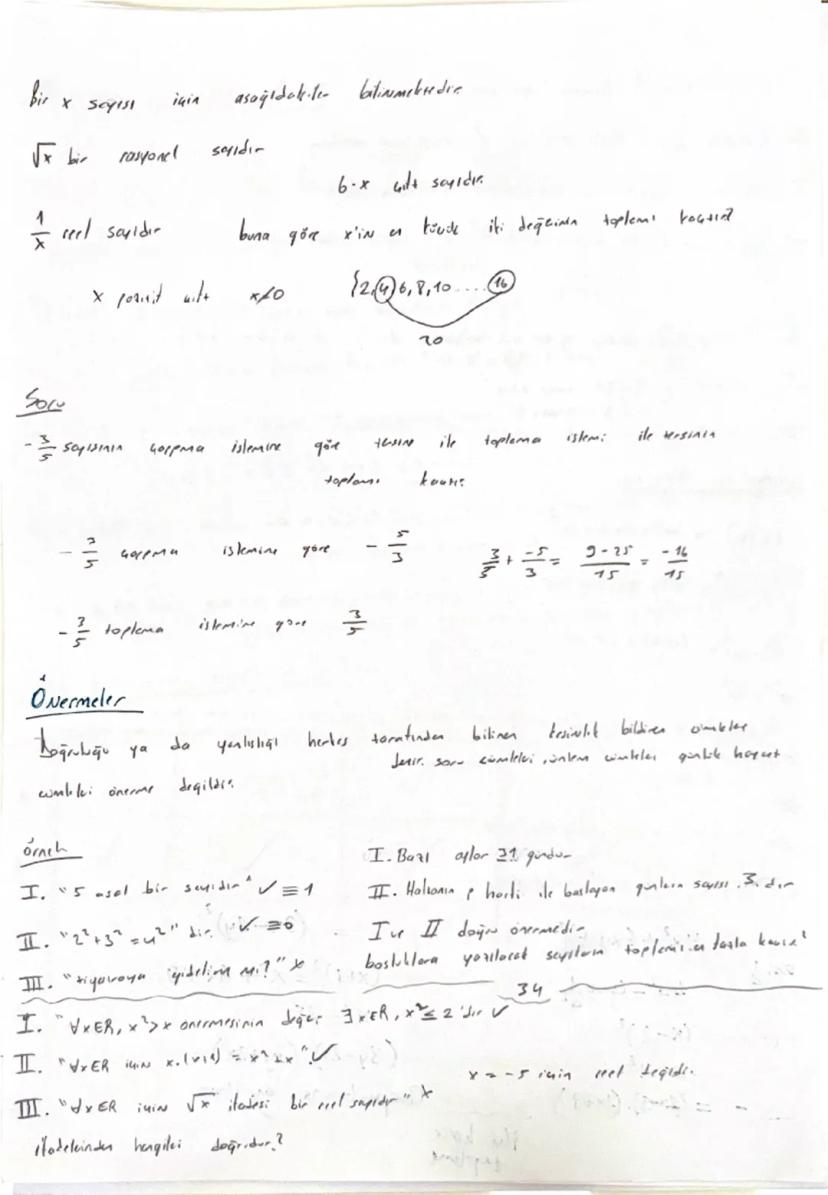 Bir x sayısı için aşağıdakiler bilinmektedir
√x bir rasyonel sayıdır
6·x çift sayıdır.
1/x reel sayıdır buna göre x'in en küçük iki değerinin toplamı kaçtır?
x pozitif çift x≠0 {2,4,6,8,10....16
20
Soru
-3/5 sayısının çarpma işlemine göre tersine ile toplama işlemi ile tersinin
toplamı kaçtır?
-3/5 çarpma işlemine göre -5/3 3/5 + -5/3 = 9-25/15 = -16/15
-3/5 toplama işlemine göre 3/5
Önermeler
Doğruluğu ya da yanlışlığı herkes tarafından bilinen kesinlik bildiren cümleler
denir. soru cümleleri, ünlem cümleleri günlük hayat
cümleleri önerme değildir.
örnek
I. "5 asal bir sayıdır" ✓ ≡ 1
II. "2²+3²=4²" dir. ✓ ≡0
III. "tiyatroya gidelim mi?" x
I. Bazı aylar 31 gündür
II. Haftanın p harfi ile başlayan günlerin sayısı .3. dır
I ve II doğru önermedir
boşluklara yazılacak sayıların toplamı en fazla kaçtır?
34
I. "∀x∈R, x²>x önermesinin değili ∃x∈R, x²≤2'dir ✓
II. "∀x∈R için x.(x+1) = x²+x" ✓
x=-5 için reel değildir.
III. "∀x∈R için √x ifadesi bir reel sayıdır" x
ifadelerinden hangileri doğrudur?